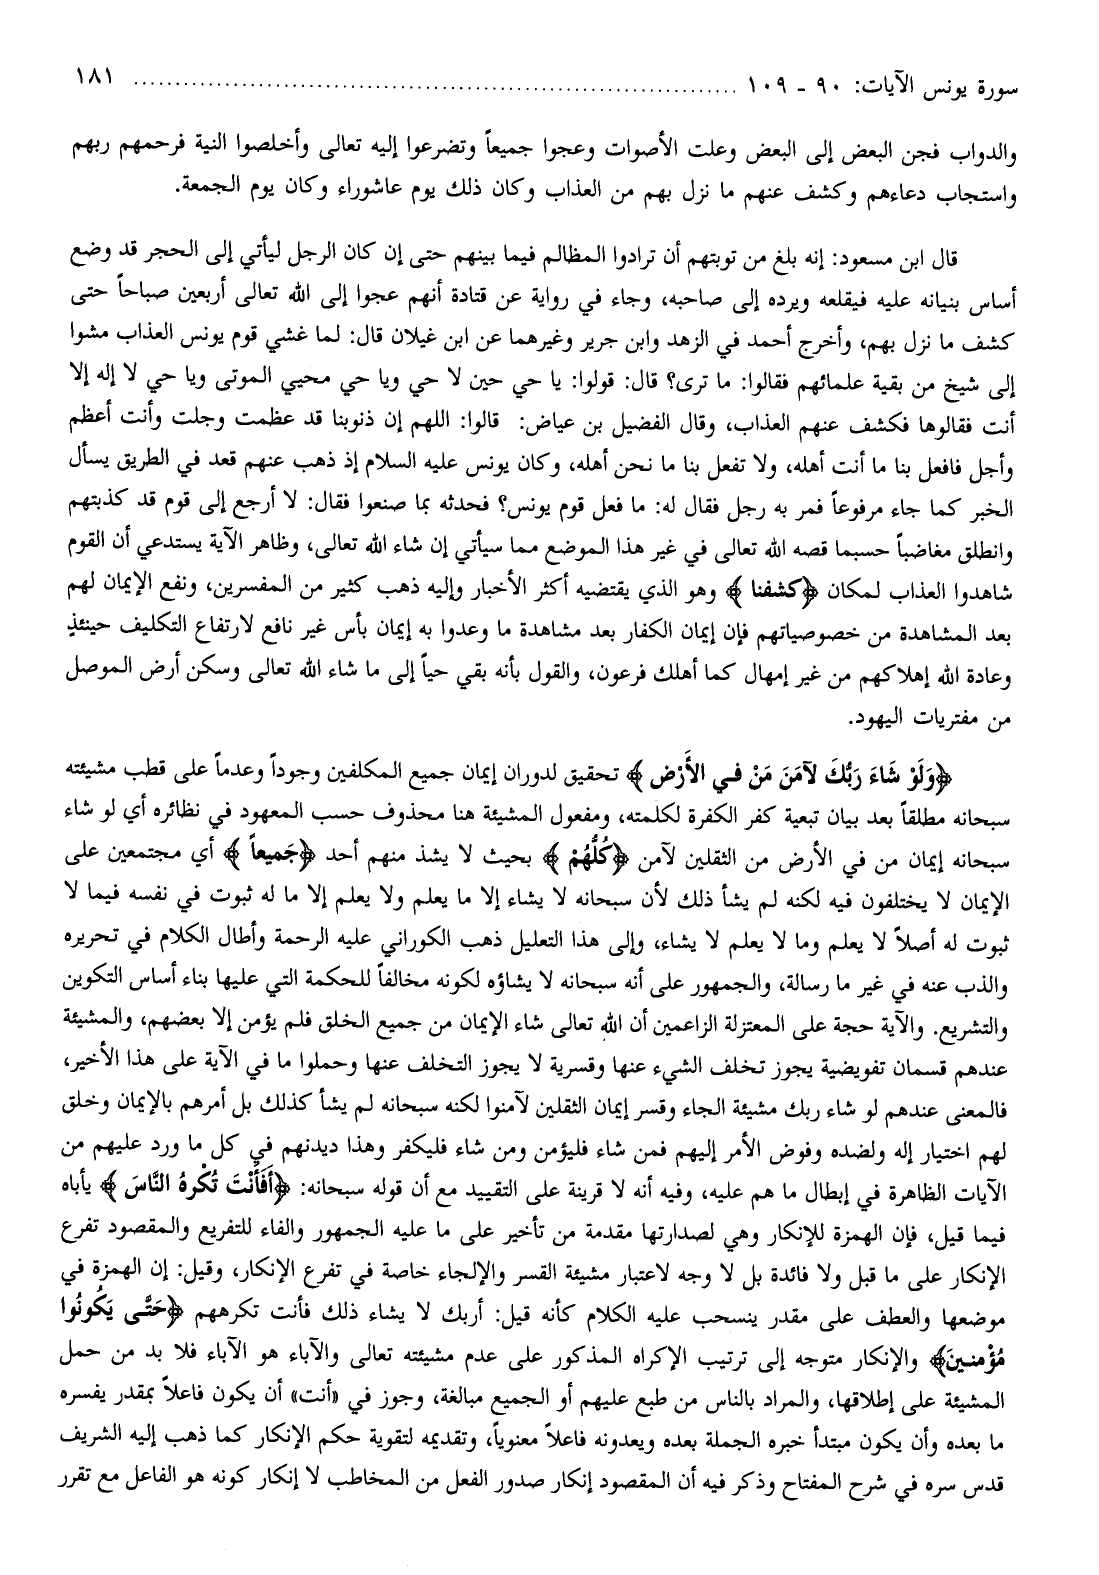 سورة يونس الآيات: ٩٠ ـ ١٠٩ ........................................................................ ١٨١
والدواب فجن البعض إلى البعض وعلت الأصوات وعجوا جميعاً وتضرعوا إليه تعالى وأخلصوا النية فرحمهم ربهم
واستجاب دعاءهم وكشف عنهم ما نزل بهم من العذاب وكان ذلك يوم عاشوراء وكان يوم الجمعة.
قال ابن مسعود: إنه بلغ من توبتهم أن ترادوا المظالم فيما بينهم حتى إن كان الرجل ليأتي إلى الحجر قد وضع
أساس بنيانه عليه فيقلعه ويرده إلى صاحبه، وجاء في رواية عن قتادة أنهم عجوا إلى الله تعالى أربعين صباحاً حتى
كشف ما نزل بهم، وأخرج أحمد في الزهد وابن جرير وغيرهما عن ابن غيلان قال: لما غشي قوم يونس العذاب مشوا
إلى شيخ من بقية علمائهم فقالوا: ما ترى؟ قال: قولوا: يا حي حين لا حي ويا حي محيي الموتى ويا حي لا إله إلا
أنت فقالوها فكشف عنهم العذاب، وقال الفضيل بن عياض: قالوا: اللهم إن ذنوبنا قد عظمت وجلت وأنت أعظم
وأجل فافعل بنا ما أنت أهله، ولا تفعل بنا ما نحن أهله، وكان يونس عليه السلام إذ ذهب عنهم قعد في الطريق يسأل
الخبر كما جاء مرفوعاً فمر به رجل فقال له: ما فعل قوم يونس؟ فحدثه بما صنعوا فقال: لا أرجع إلى قوم قد كذبتهم
وانطلق مغاضباً حسبما قصه الله تعالى في غير هذا الموضع مما سيأتي إن شاء الله تعالى، وظاهر الآية يستدعي أن القوم
شاهدوا العذاب لمكان ﴿كشفنا﴾ وهو الذي يقتضيه أكثر الأخبار وإليه ذهب كثير من المفسرين، ونفع الإيمان لهم
بعد المشاهدة من خصوصياتهم فإن إيمان الكفار بعد مشاهدة ما وعدوا به إيمان بأس غير نافع لارتفاع التكليف حينئذٍ
وعادة الله إهلاكهم من غير إمهال كما أهلك فرعون، والقول بأنه بقي حياً إلى ما شاء الله تعالى وسكن أرض الموصل
من مفتريات اليهود.
﴿وَلَوْ شَاءَ رَبُّكَ لآمَنَ مَنْ فـي الأَرْض﴾ تحقيق لدوران إيمان جميع المكلفين وجوداً وعدماً على قطب مشيئته
سبحانه مطلقاً بعد بيان تبعية كفر الكفرة لكلمته، ومفعول المشيئة هنا محذوف حسب المعهود في نظائره أي لو شاء
سبحانه إيمان من في الأرض من الثقلين لآمن ﴿كُلُّهُمْ﴾ بحيث لا يشذ منهم أحد ﴿جَميعاً﴾ أي مجتمعين على
الإيمان لا يختلفون فيه لكنه لم يشأ ذلك لأن سبحانه لا يشاء إلا ما يعلم ولا يعلم إلا ما له ثبوت في نفسه فيما لا
ثبوت له أصلاً لا يعلم وما لا يعلم لا يشاء، وإلى هذا التعليل ذهب الكوراني عليه الرحمة وأطال الكلام في تحريره
والذب عنه في غير ما رسالة، والجمهور على أنه سبحانه لا يشاؤه لكونه مخالفاً للحكمة التي عليها بناء أساس التكوين
والتشريع. والآية حجة على المعتزلة الزاعمين أن الله تعالى شاء الإيمان من جميع الخلق فلم يؤمن إلا بعضهم، والمشيئة
عندهم قسمان تفويضية يجوز تخلف الشيء عنها وقسرية لا يجوز التخلف عنها وحملوا ما في الآية على هذا الأخير،
فالمعنى عندهم لو شاء ربك مشيئة الجاء وقسر إيمان الثقلين لآمنوا لكنه سبحانه لم يشأ كذلك بل أمرهم بالإيمان وخلق
لهم اختيار إله ولضده وفوض الأمر إليهم فمن شاء فليؤمن ومن شاء فليكفر وهذا ديدنهم في كل ما ورد عليهم من
الآيات الظاهرة في إبطال ما هم عليه، وفيه أنه لا قرينة على التقييد مع أن قوله سبحانه: ﴿أَفَأَنْتَ تُكْرهُ النَّاسَ﴾ يأباه
فيما قيل، فإن الهمزة للإنكار وهي لصدارتها مقدمة من تأخير على ما عليه الجمهور والفاء للتفريع والمقصود تفرع
الإنكار على ما قبل ولا فائدة بل لا وجه لاعتبار مشيئة القسر والإلجاء خاصة في تفرع الإنكار، وقيل: إن الهمزة في
موضعها والعطف على مقدر ينسحب عليه الكلام كأنه قيل: أربك لا يشاء ذلك فأنت تكرههم ﴿حَتَّى يَكُونُوا
مُؤْمنـينَ﴾ والإنكار متوجه إلى ترتيب الإكراه المذكور على عدم مشيئته تعالى والآباء هو الآباء فلا بد من حمل
المشيئة على إطلاقها، والمراد بالناس من طبع عليهم أو الجميع مبالغة، وجوز في «أنت» أن يكون فاعلاً بمقدر يفسره
ما بعده وأن يكون مبتدأ خبره الجملة بعده ويعدونه فاعلاً معنوياً، وتقديمه لتقوية حكم الإنكار كما ذهب إليه الشريف
قدس سره في شرح المفتاح وذكر فيه أن المقصود إنكار صدور الفعل من المخاطب لا إنكار كونه هو الفاعل مع تقرر